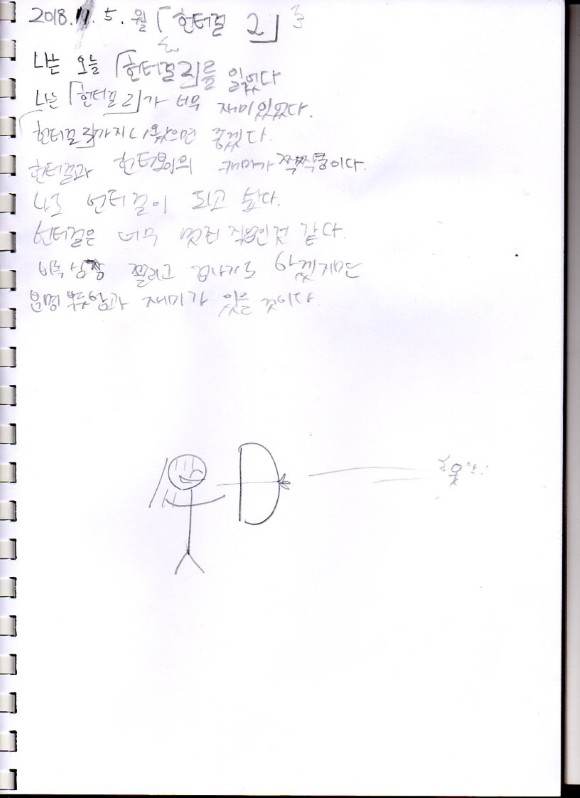 2018. 11. 5. 월 「헌터걸 2」를
나는 오늘 「헌터걸2」를 읽었다
나는 「헌터걸2」가 너무 재미있었다.
헌터걸 나왔으면 좋겠다.
헌터걸과 헌터보이의 재미가 짝짝쿵이다.
나도 헌터걸이 되고 싶다.
헌터걸은 너무 멋진 직업인것 같다.
비록 심장 떨리고 겁나기도 하겠지만
분명 뿌듯함과 재미가 있을 것이다.